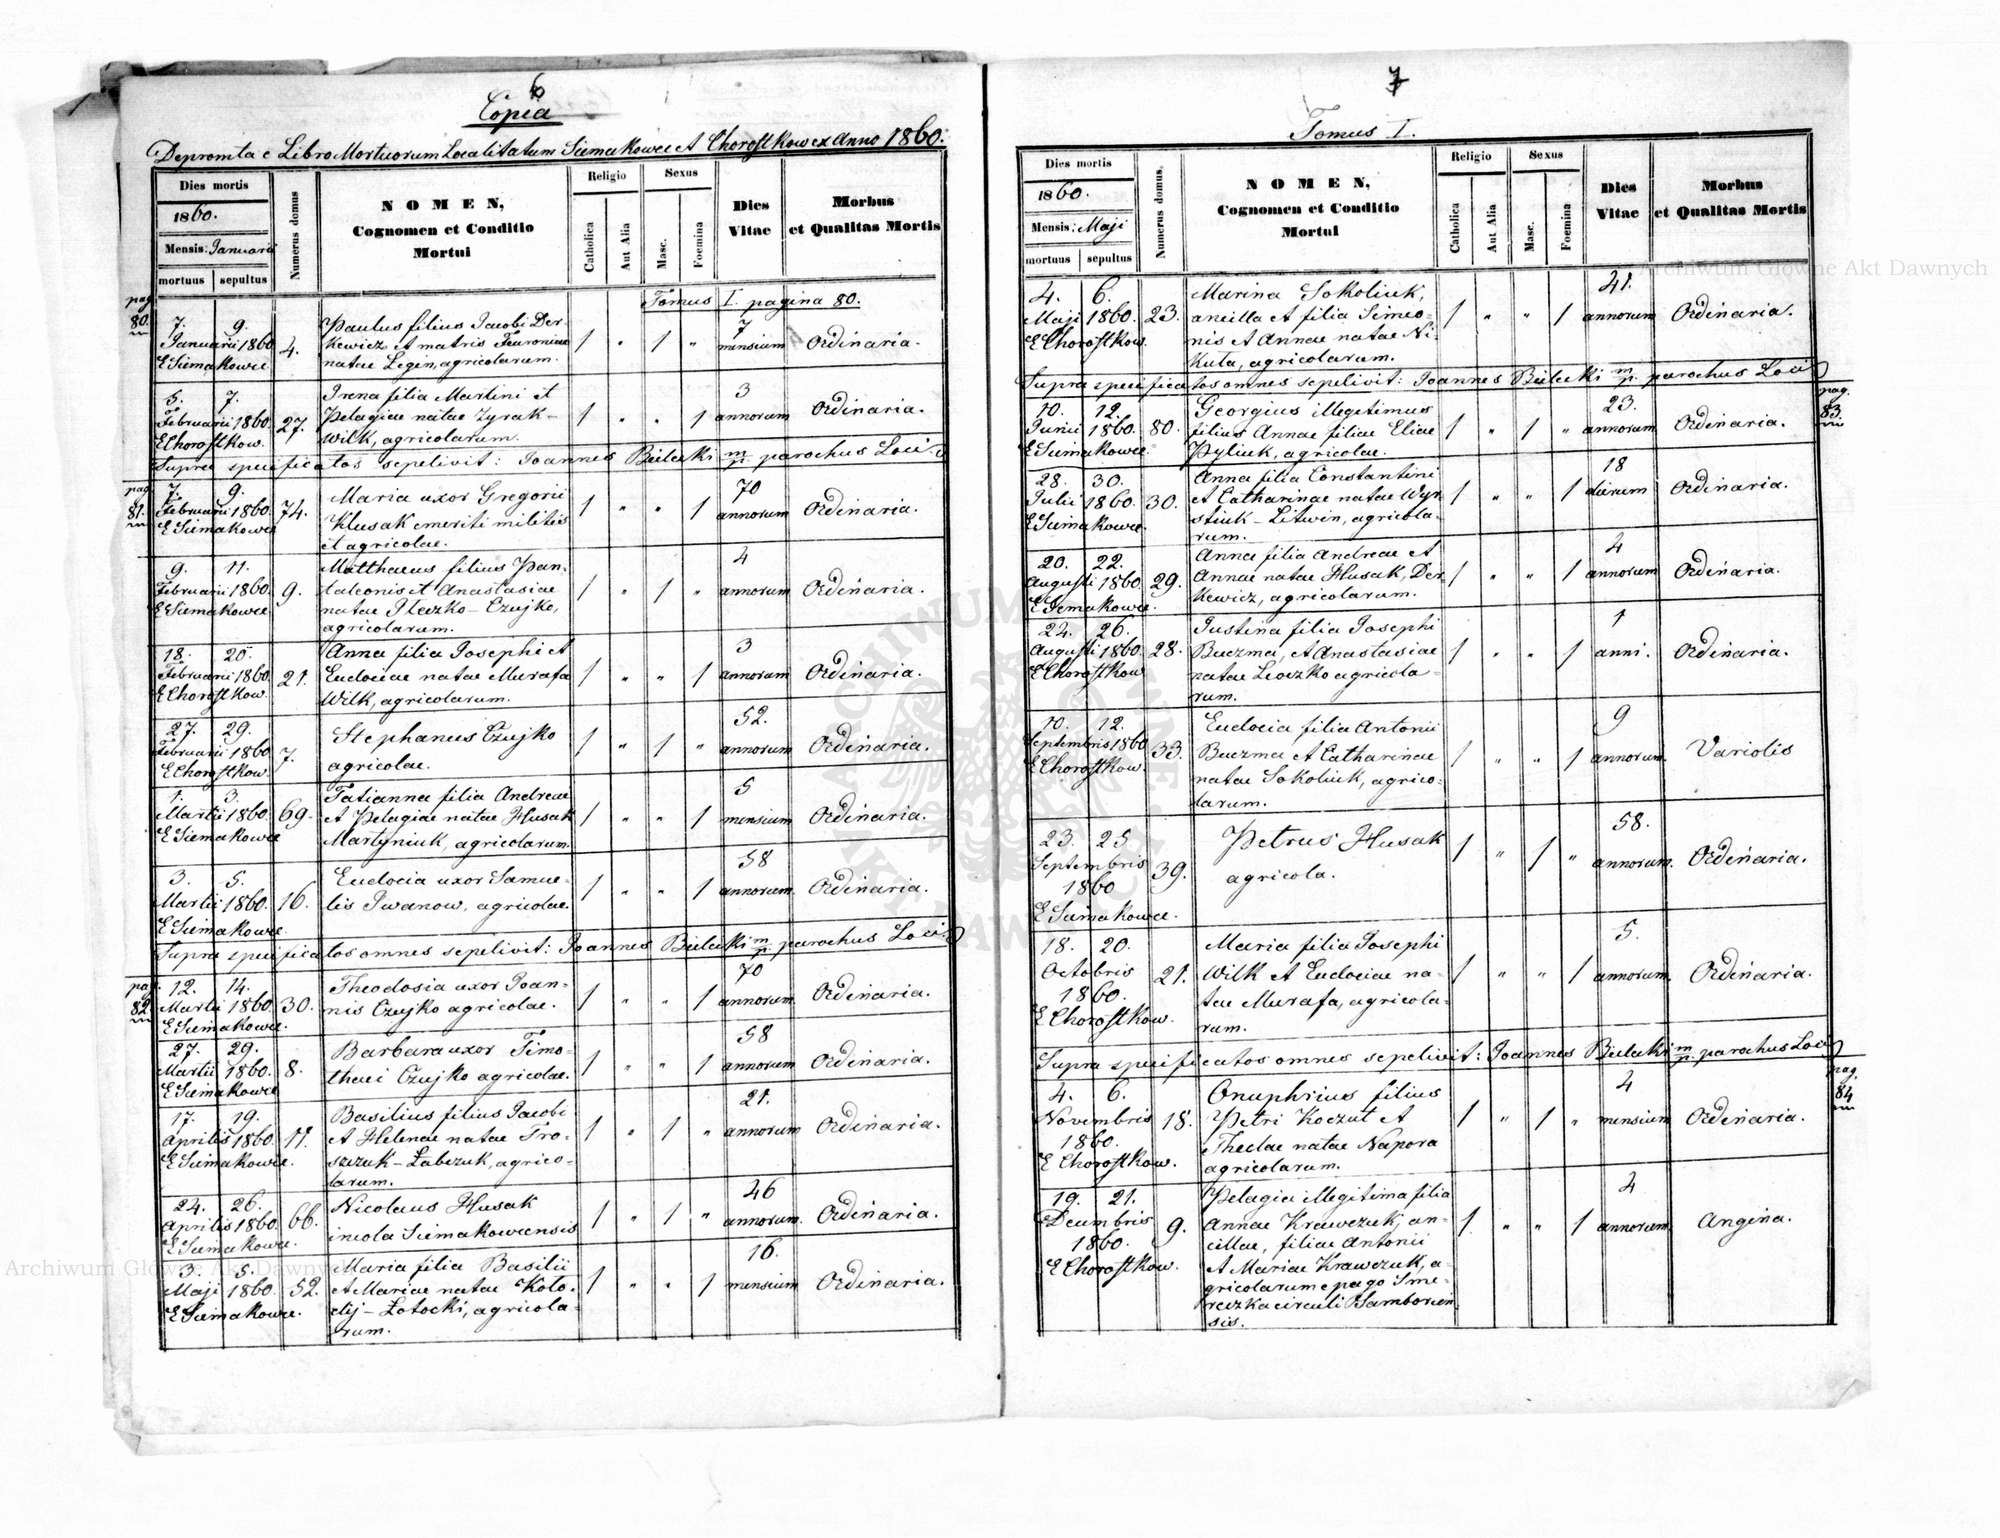 6
Copia
Depromta e Libro Mortuorum Localitatum Siemakowce et Chorostkow ex Anno 1860.
Dies mortis
1860.
Mensis: Januarii
mortuus sepultus
Numerus domus
NOMEN,
Cognomen et Conditio
Mortui
Religio
Catholica
Aut Alia
Sexus
Masc.
Foemina
Dies
Vitae
Morbus
et Qualitas Mortis
Tomus I. pagina 80.
pag. 80.
7. 9.
Januarii 1860
E Siemakowce
4.
Paulus filius Jacobi Der-
kewicz et matris Fevroniae
natae Legin, agricolarum.
1 " 1 "
7
mensium
Ordinaria.
5. 7.
Februarii 1860.
E Chorostkow.
27.
Irena filia Martini et
Pelagiae natae Zyrak-
Wilk, agricolarum.
1 " " 1
3
annorum
Ordinaria.
Supra specificatos sepelivit: Joannes Bielecki mp. parochus Loci.
pag. 81.
7. 9.
Februarii 1860.
E Siemakowce
74.
Maria uxor Gregorii
Klusak emeriti militis
et agricolae.
1 " " 1
70
annorum
Ordinaria.
9. 11.
Februarii 1860.
E Siemakowce
9.
Matthaeus filius Pan-
taleonis et Anastasiae
natae Ileczko-Czujko,
agricolarum.
1 " 1 "
4
annorum
Ordinaria.
18. 20.
Februarii 1860.
E Chorostkow.
21.
Anna filia Josephi et
Eudociae natae Murafa
Wilk, agricolarum.
1 " " 1
3
annorum
Ordinaria.
27. 29.
Februarii 1860
E Chorostkow.
7.
Stephanus Czujko
agricolae.
1 " 1 "
52.
annorum
Ordinaria.
1. 3.
Martii 1860.
E Siemakowce
69.
Tatianna filia Andreae
et Pelagiae natae Husak
Martyniuk, agricolarum.
1 " " 1
5
mensium
Ordinaria.
3. 5.
Martii 1860.
E Siemakowce.
16.
Eudocia uxor Samue-
lis Iwanow, agricolae.
1 " " 1
58
annorum.
Ordinaria.
Supra specificatos omnes sepelivit: Joannes Bielecki mp. parochus Loci.
pag. 82.
12. 14.
Martii 1860.
E Siemakowce.
30.
Theodosia uxor Joan-
nis Czujko agricolae.
1 " " 1
70
annorum.
Ordinaria.
27. 29.
Martii 1860.
E Siemakowce
8.
Barbara uxor Timo-
thaei Czujko agricolae.
1 " " 1
58
annorum
Ordinaria.
17. 19.
Aprilis 1860.
E Siemakowce.
11.
Basilius filius Jacobi
et Helenae natae Tro-
szczuk-Łabczuk, agrico-
larum.
1 " 1 "
21.
annorum
Ordinaria.
24. 26.
Aprilis 1860.
E Siemakowce.
66.
Nicolaus Husak
incola Siemakowcensis
1 " 1 "
46
annorum.
Ordinaria.
3. 5.
Maji 1860.
E Siemakowce.
52.
Maria filia Basilii
et Mariae natae Koło-
dij-Łotocki, agricola-
rum.
1 " " 1
16.
mensium
Ordinaria.
7
Tomus I.
Dies mortis
1860.
Mensis: Maji
mortuus sepultus
Numerus domus.
NOMEN,
Cognomen et Conditio
Mortui
Religio
Catholica
Aut Alia
Sexus
Masc.
Foemina
Dies
Vitae
Morbus
et Qualitas Mortis
4. 6.
Maji 1860.
E Chorostkow.
23.
Marina Sokoliuk,
ancilla et filia Simeo-
nis et Annae natae Ni-
kuta, agricolarum.
1 " " 1
41.
annorum
Ordinaria.
Supra specificatos omnes sepelivit: Joannes Bielecki mp. parochus Loci
pag. 83.
10. 12.
Junii 1860.
E Siemakowce.
80.
Georgius illegitimus
filius Annae filiae Eliae
Pyliuk, agricolae.
1 " 1 "
23.
annorum
Ordinaria.
28. 30.
Julii 1860.
E Siemakowce.
30.
Anna filia Constantini
et Catharinae natae Wyr-
stiuk-Litwin, agricola-
rum.
1 " " 1
18
dierum
Ordinaria.
20. 22.
Augusti 1860.
E Siemakowce.
29.
Anna filia Andreae et
Annae natae Husak, Der-
kewicz, agricolarum.
1 " " 1
4
annorum
Ordinaria.
24. 26.
Augusti 1860.
E Chorostkow
28.
Justina filia Josephi
Buczma, et Anastasiae
natae Leoczko agricola-
rum.
1 " " 1
1
anni.
Ordinaria.
10. 12.
Septembris 1860
E Chorostkow.
33.
Eudocia filia Antonii
Buczma et Catharinae
natae Sokoliuk, agrico-
larum.
1 " " 1
9
annorum.
Variolis
23. 25.
Septembris
1860
E Siemakowce.
39.
Petrus Husak
agricola.
1 " 1 "
58.
annorum.
Ordinaria.
18. 20.
Octobris
1860.
E Chorostkow.
21.
Maria filia Josephi
Wilk et Eudociae na-
tae Murafa, agricola-
rum.
1 " " 1
5.
annorum.
Ordinaria.
Supra specificatos omnes sepelivit: Joannes Bielecki mp. parochus Loci
pag. 84
4. 6.
Novembris
1860.
E Chorostkow.
18.
Onuphrius filius
Petri Koczut et
Theclae natae Napora
agricolarum.
1 " 1 "
4
mensium
Ordinaria.
19. 21.
Decembris
1860.
E Chorostkow.
9.
Pelagia illegitima filia
Annae Krawczuk, an-
cillae, filiae Antonii
et Mariae Krawczuk, a-
gricolarum e pago Sme-
reczka circuli Samborien-
sis.
1 " " 1
4
annorum
Angina.
Archiwum Główne Akt Dawnych
Archiwum Główne Akt Dawnych
ARCHIWUM GŁÓWNE AKT DAWNYCH